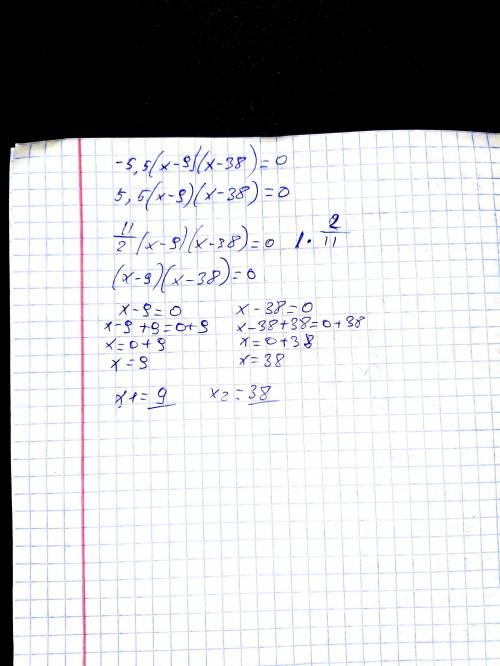 -5,5(x-9)(x-38)=0
5,5(x-9)(x-38)=0
11/2 (x-9)(x-38)=0 | · 2/11
(x-9)(x-38)=0
x-9=0 x-38=0
x-9+9=0+9 x-38+38=0+38
x=0+9 x=0+38
x=9 x=38
x1=9 x2=38